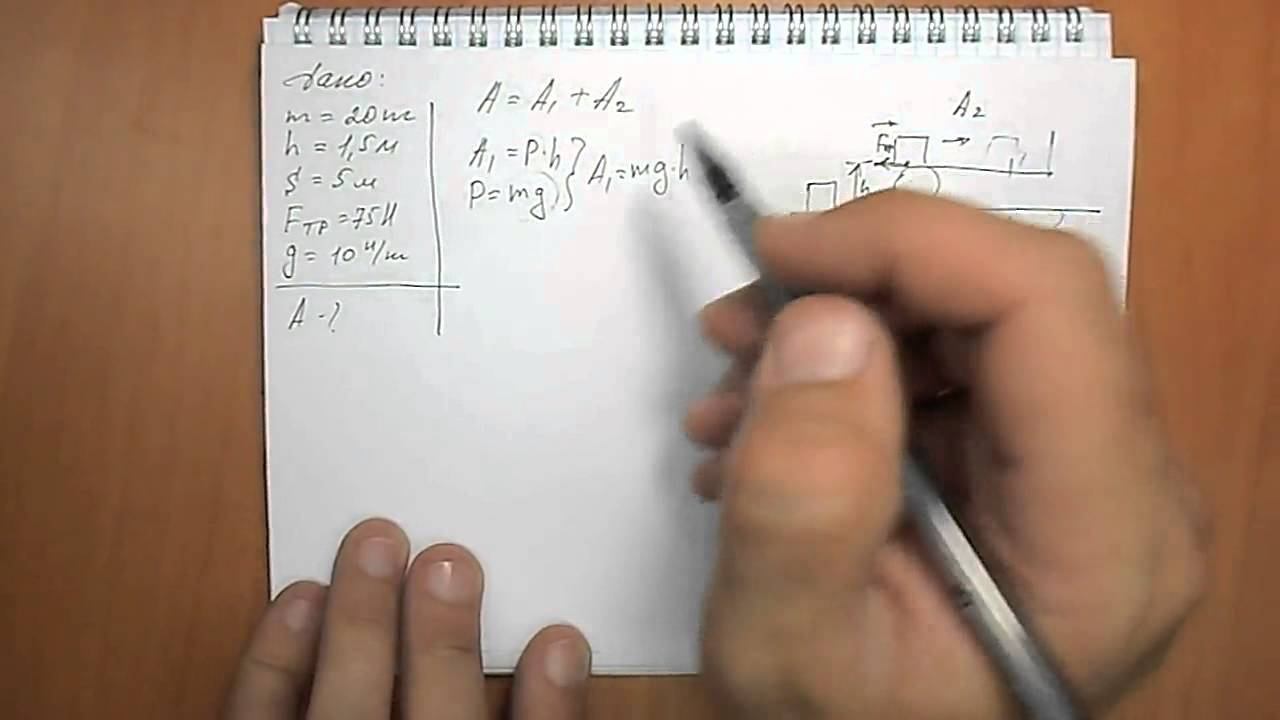 Дано:
m = 20 кг
h = 1,5 м
S = 5 м
Fтр = 75 Н
g = 10 Н/кг
A - ?
A = A₁ + A₂
A₁ = P·h } A₁ = mg·h
P = mg
A₂
Fтр
h